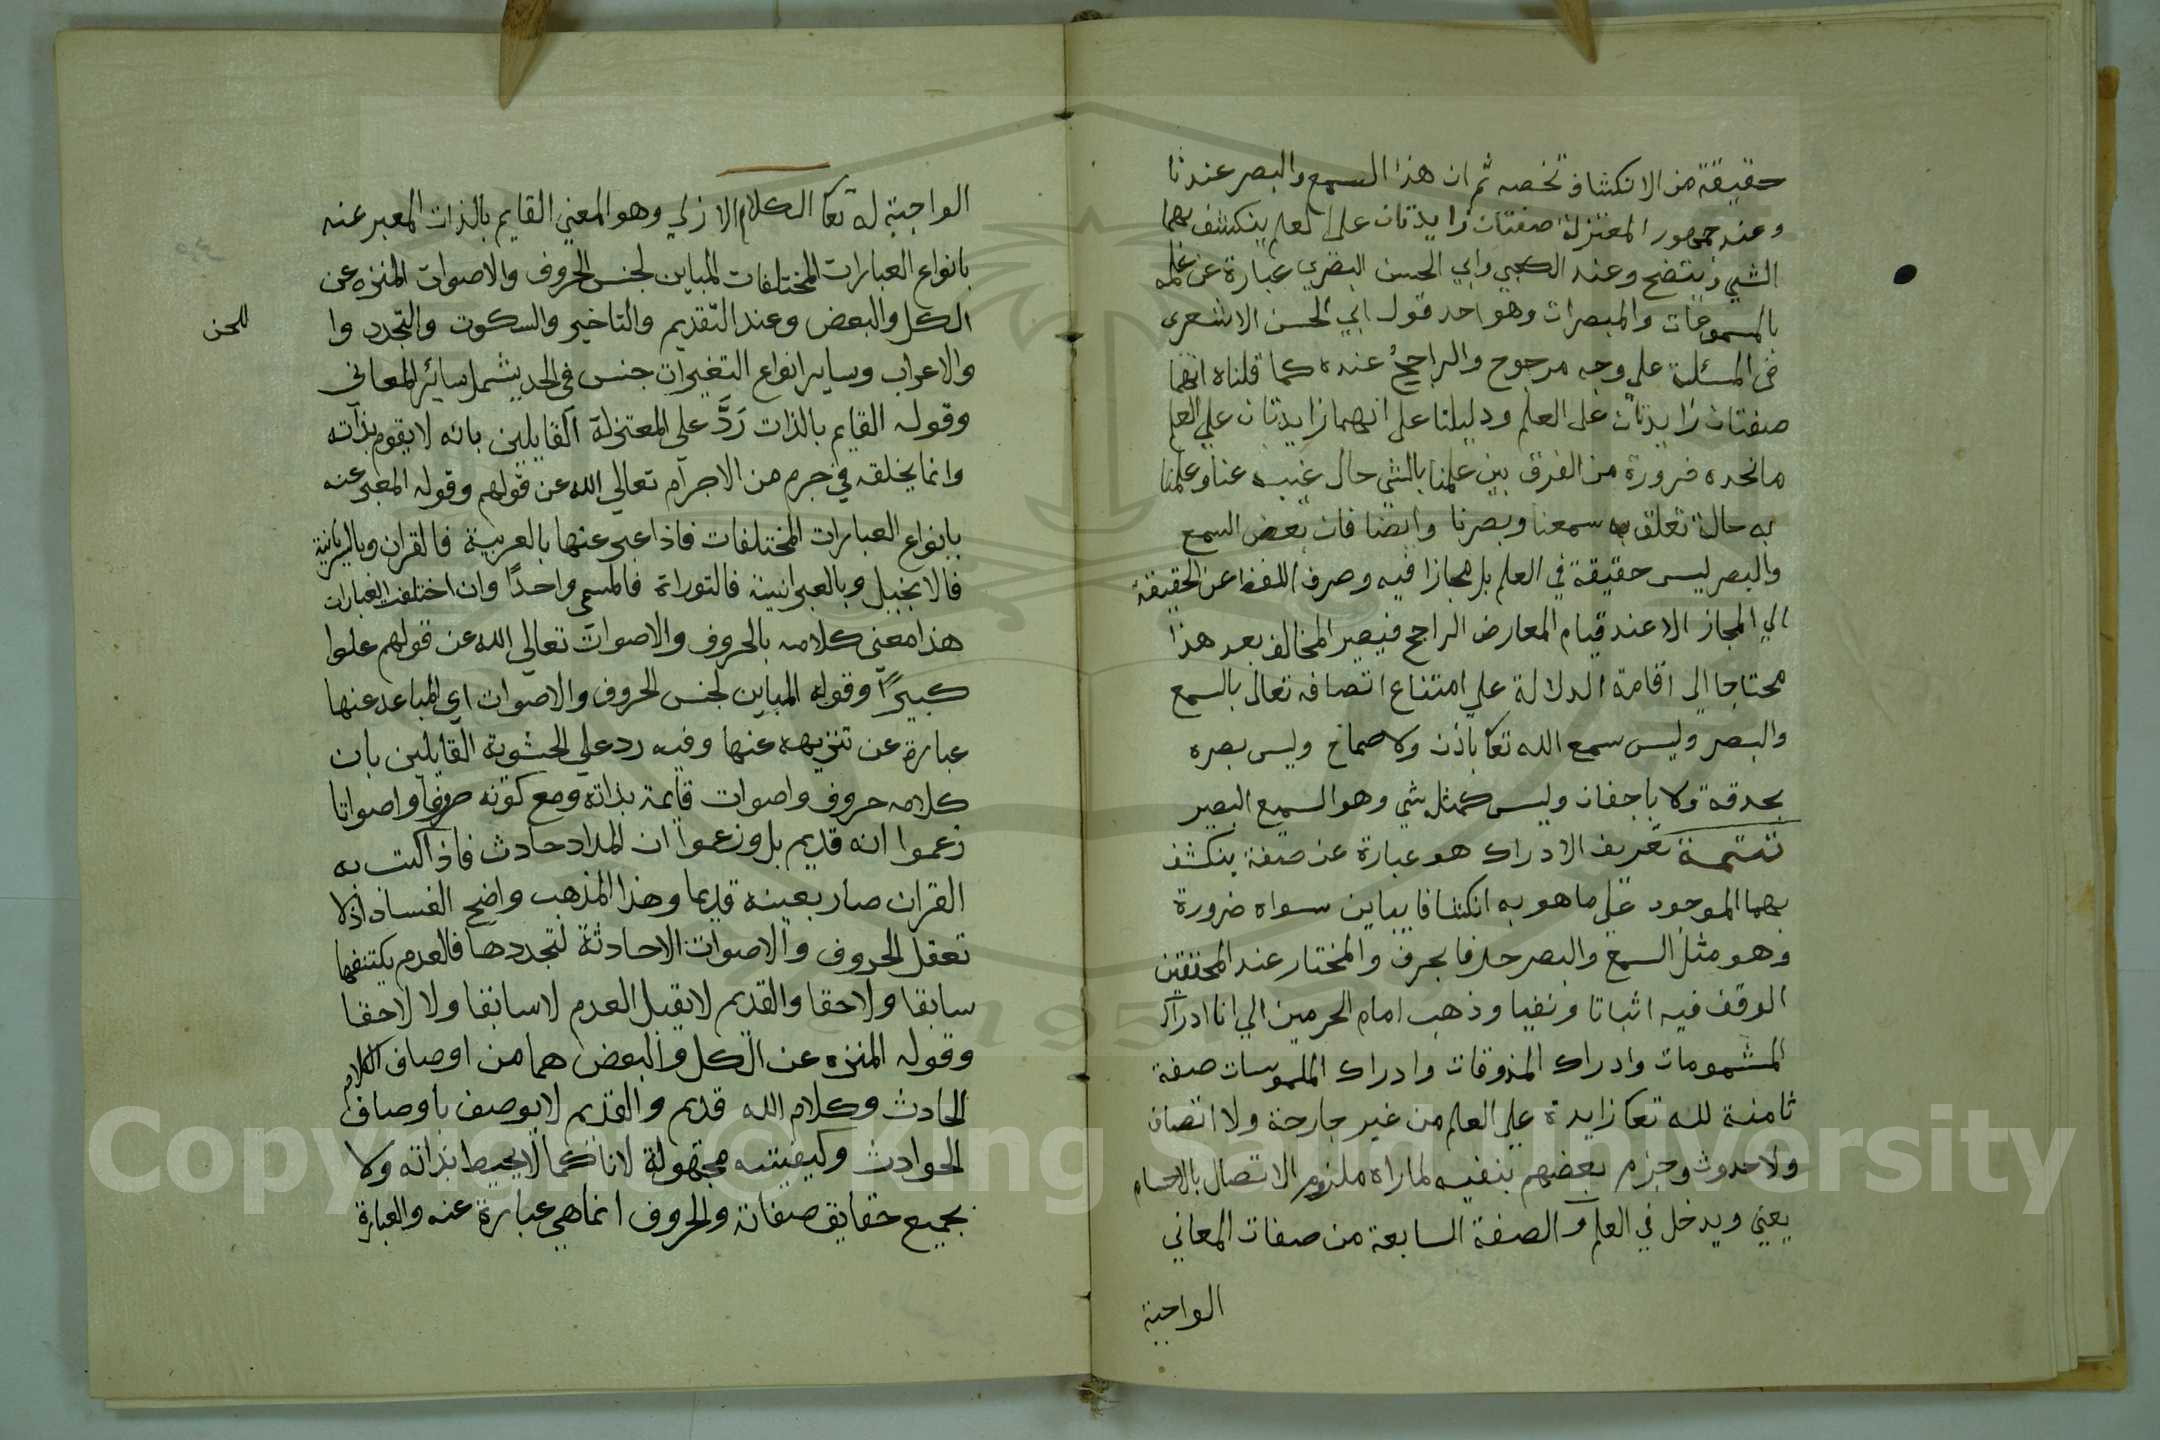 حقيقة من الانكشاف تخصه ثم ان هذا السمع والبصر عندنا
وعند جمهور المعتزلة صفتان زايدتان على العلم ينكشف بهما
الشي ويتضح وعند الكعبي وابي الحسن البصري عبارة عن علمه
بالمسموعات والمبصرات وهو احد قول ابي الحسن الاشعري
في المسئلة على وجه مرجوح والراجح عنده كما قلناه انهما
صفتان زايدتان على العلم ودليلنا على انهما زايدتان على العلم
مانجده ضرورة من الفرق بين علمنا بالشي حال غيبه عنا وعلمنا
به حالة تعلق به سمعنا وبصرنا وايضا فان بعض السمع
والبصر ليس حقيقة في العلم بل مجازا فيه وصرف اللفظ عن الحقيقة
الي المجاز الا عند قيام المعارض الراجح فيصير المخالف بعد هذا
محتاجا الى اقامة الدلالة على امتناع اتصافه تعالى بالسمع
والبصر وليس سمع الله تعا باذن ولا صماخ وليس بصره
بحدقة ولا باجفان وليس كمثله شي وهو السميع البصير
تتمة تعريف الادراك هو عبارة عن صفة ينكشف
بهما الموجود على ما هو به انكشافا يباين سواه ضرورة
وهو مثل السمع والبصر حرفا بحرف والمختار عند المحققين
الوقف فيه اثباتا ونفيا وذهب امام الحرمين الي انا ادراك
المشمومات وادراك المذوقات وادراك الملموسات صفة
ثامنة لله تعا زايدة على العلم من غير جارحة ولا اتصاف
ولا حدوث وجزم بعضهم بنفيه لماراه ملزوم الاتصال بالاجسام
يعني ويدخل في العلم والصفة السابعة من صفات المعاني
الواجبة
الواجبة له تعا الكلام الازلي وهو المعني القايم بالذات المعبر عنه
بانواع العبارات المختلفات المباين لجنس الحروف والاصوات المنزه عن
الكل والبعض وعند التقديم والتاخير والسكوت والتجدد وا
للحن
والاعراب وساير انواع التغيرات جنس في الحد يشمل سائر المعاني
وقوله القايم بالذات رَدَّ على المعتزلة القايلين بانه لا يقوم بذاته
وانما يخلقه في جرم من الاجرام تعالي الله عن قولهم وقوله المعبر عنه
بانواع العبارات المختلفات فاذا عبر عنها بالعربية فالقران وبالسريانية
فالانجيل وبالعبرانية فالتوراة فالمسمى واحدًا وان اختلفت العبارات
هذا معنى كلامه بالحروف والاصوات تعالي الله عن قولهم علوا
كبيرًا وقوله المباين لجنس الحروف والاصوات اي المباعد عنها
عبارة عن تنزيهه عنها وفيه رد على الحشوية القايلين بان
كلامه حروف واصوات قايمة بذاته ومع كونه حروفا واصواتا
زعموا انه قديم بل وزعموا ان المداد حادث فاذا كتب به
القران صار بعينه قديما وهذا المذهب واضح الفساد اذ لا
تعقل الحروف والاصوات الا حادثة لتجددها فالعدم يكتنفها
سابقا ولاحقا والقديم لا يقبل العدم لا سابقا ولا لاحقا
وقوله المنزه عن الكل والبعض هما من اوصاف الكلام
الحادث وكلام الله قديم والقديم لا يوصف باوصاف
الحوادث وكيفيته مجهولة لانا كما لا يحيط بذاته ولا
بجميع حقايق صفاته والحروف انما هي عبارة عنه والعبارة
Copyright © King Saud University
1957